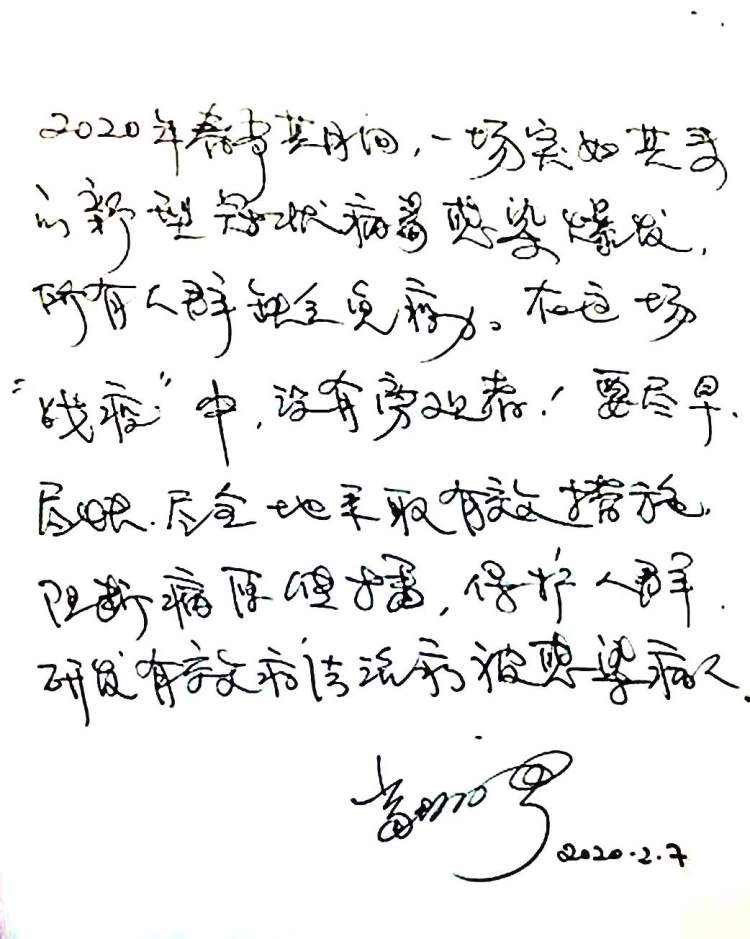 2020年春节期间，一场突如其来
的新型冠状病毒感染爆发，
所有人群缺乏免疫力。在这场
“战疫”中，没有旁观者！要尽早、
尽快、尽全地采取有效措施，
阻断病原传播，保护人群，
研发有效疗法治疗被感染病人。
2020.2.7